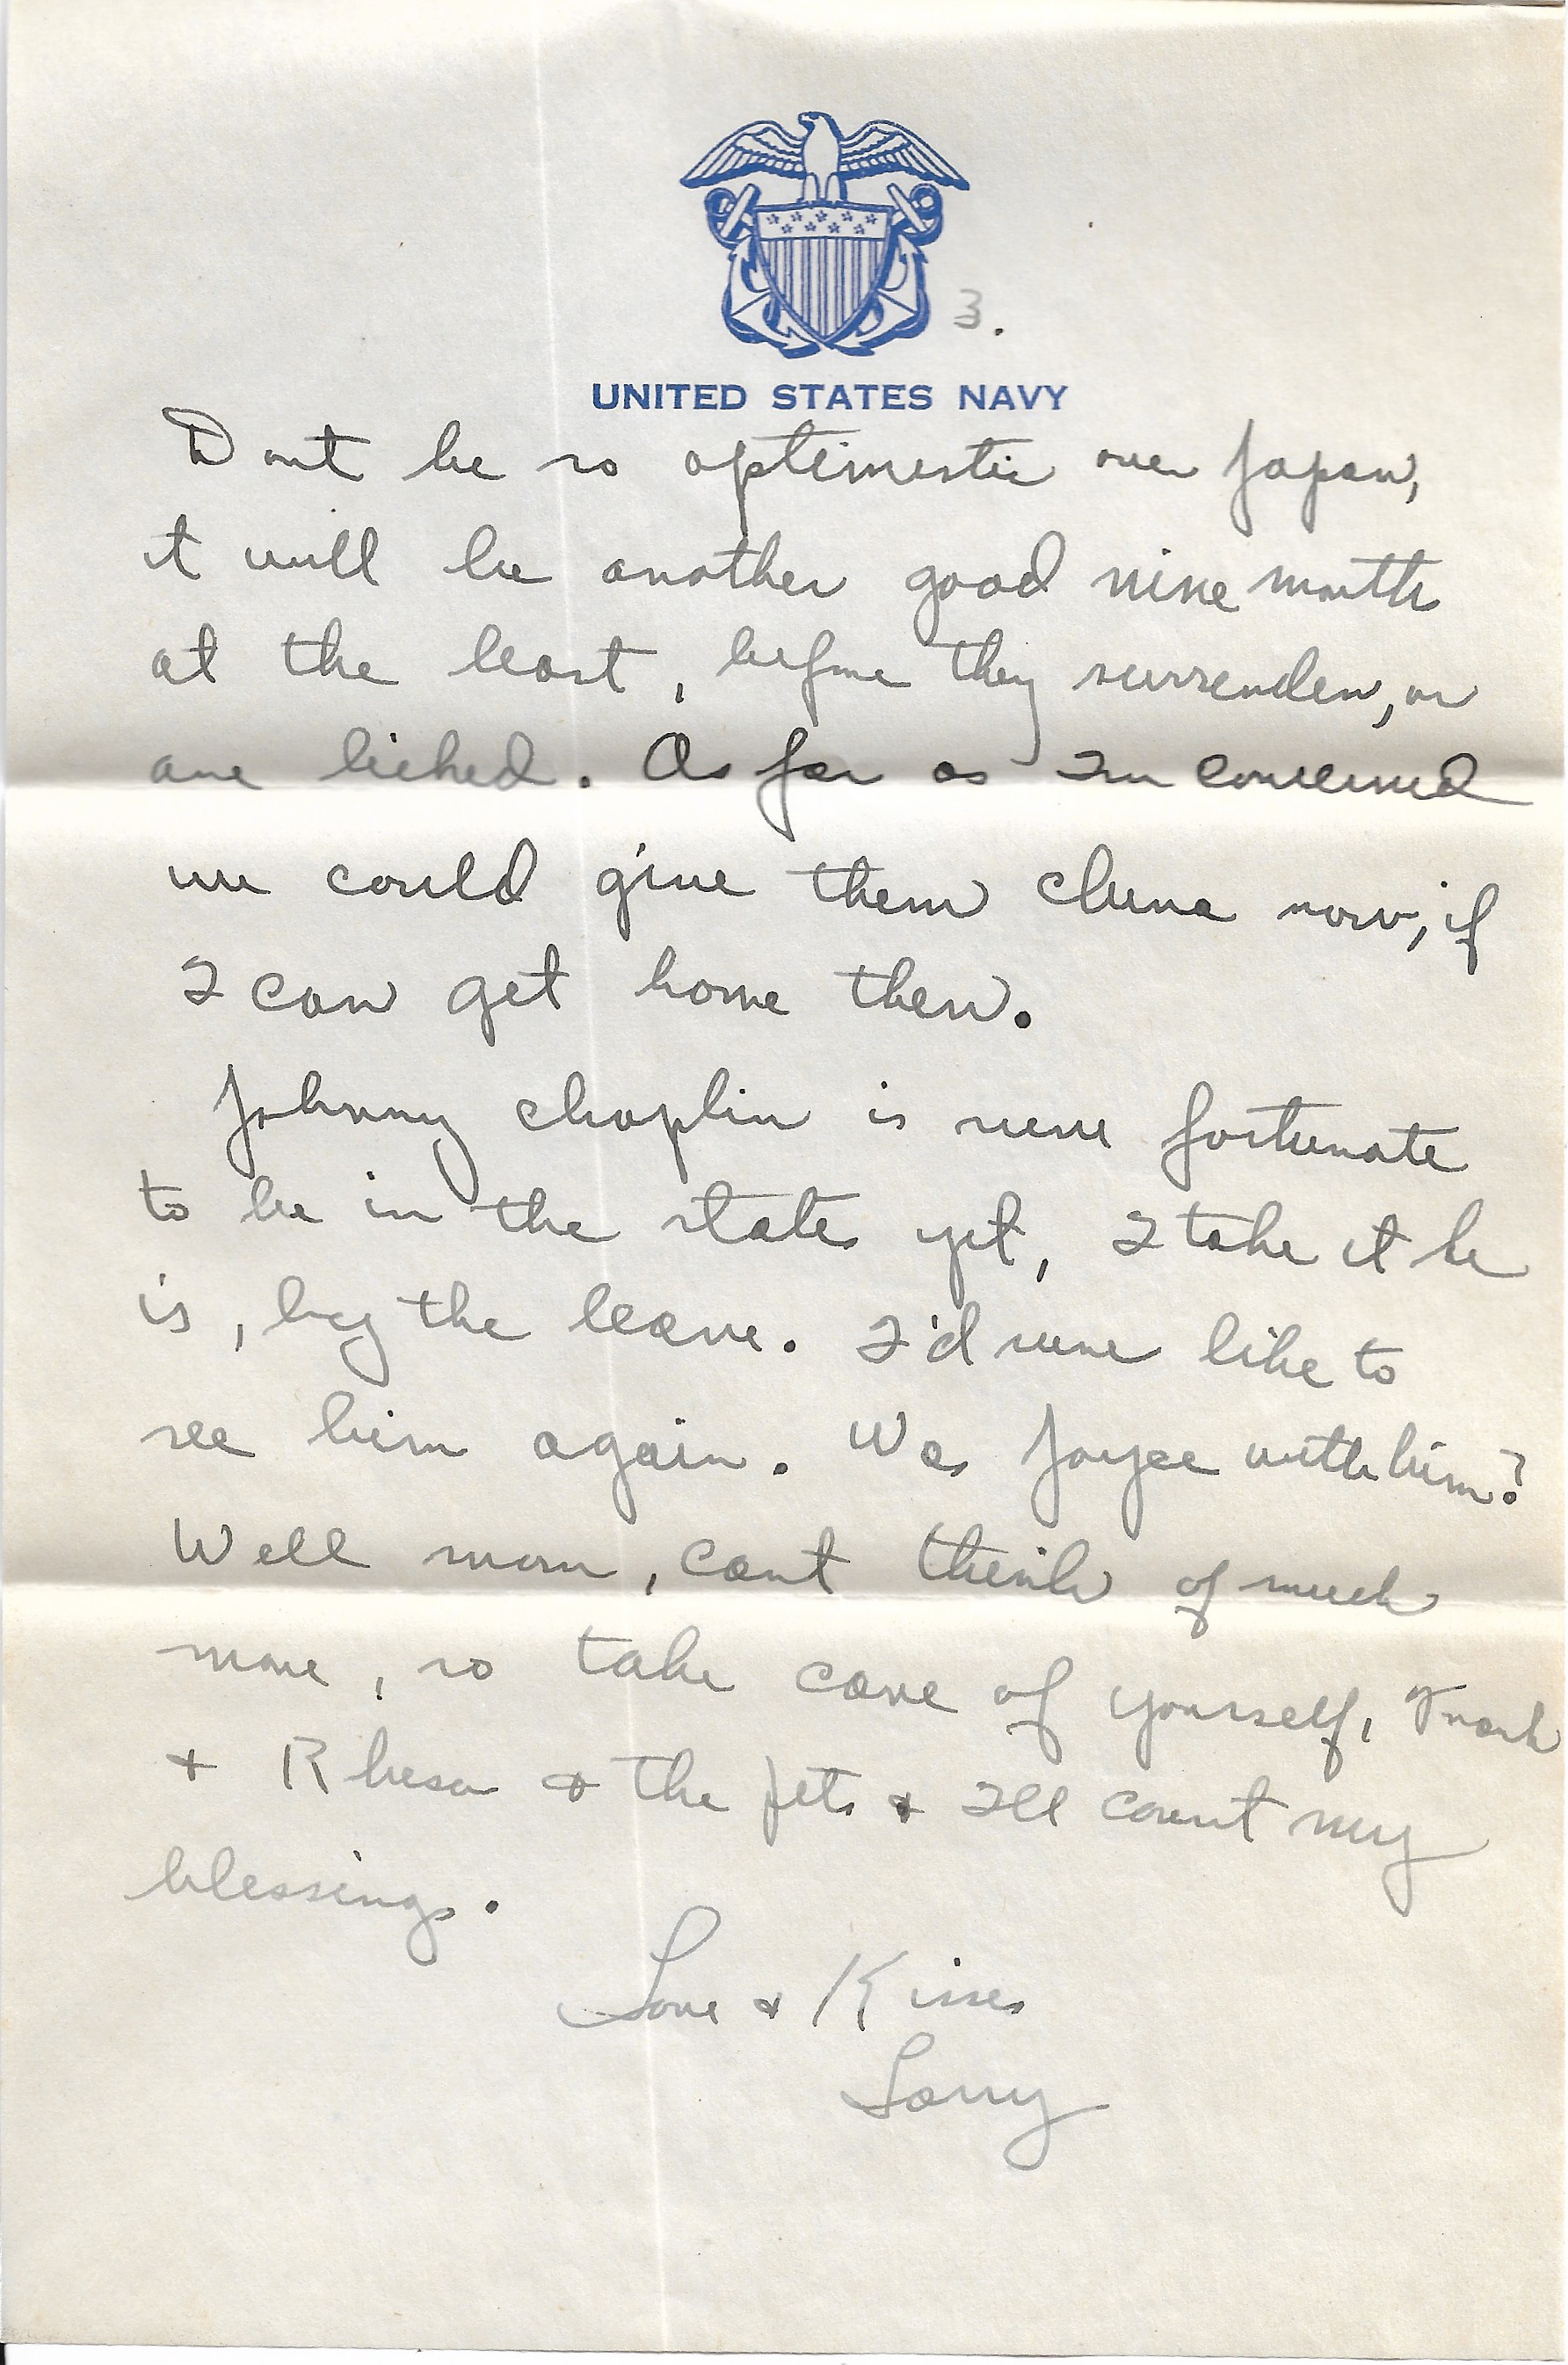 3.
UNITED STATES NAVY
Dont be so optimestic over Japan,
it will be another good nine month
at the least, before they surrender, or
are licked. As far as Im concerned
we could give them china now, if
I can get home then.
Johnny chaplin is sure fortunate
to be in the states yet, I take it he
is, by the leave. I'd sure like to
see him again. Was Joyce with him?
Well mom, cant think of much
more, so take care of yourself, Frank
+ Rhesa + the pets + Ill count my
blessings.
Love + Kisses
Larry